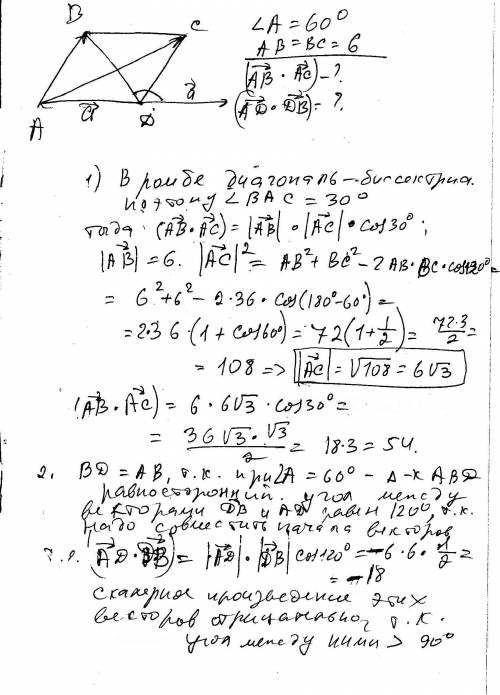 B C
∠A = 60°
AB = BC = 6
(AB · AC) – ?
(AD · DB) = ?
A a D a
1) В ромбе диагональ – биссектриса.
поэтому ∠BAC = 30°
тогда (AB · AC) = |AB| · |AC| · cos30°;
|AB| = 6. |AC|² = AB² + BC² – 2AB·BC·cos120° =
= 6² + 6² – 2·36 · cos(180° – 60°) =
= 2·36·(1 + cos60°) = 72(1 + 1/2) = 72·3/2 =
= 108 => |AC| = √108 = 6√3
(AB · AC) = 6 · 6√3 · cos30° =
= 36√3 · √3 / 2 = 18·3 = 54.
2. BD = AB, т.к. при ∠A = 60° – Δ-к ABD
равносторонний. угол между
векторами DB и AD равен 120°, т.к.
надо совместить начала векторов
т.е. (AD · DB) = |AD| · |DB| cos120° = –6·6·1/2 =
= –18
скалярное произведение этих
векторов отрицательно, т.к.
угол между ними > 90°